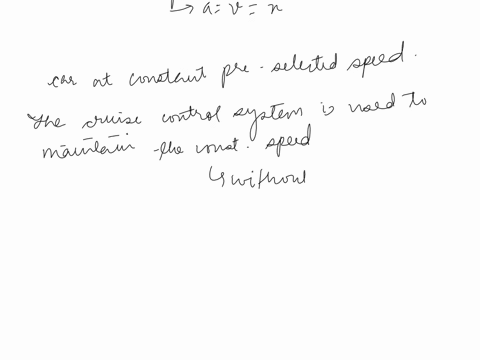 ↳ a = v = x
car at constant pre-selected speed.
The cruise control system is used to
maintain the const. speed
↳ without